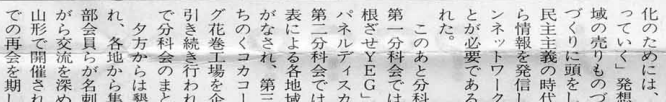 化のためには、
っていく」発想
域の売りものづ
づくりに頭をし
民主主義の時代
ら情報を発信し
ンネットワーク
とが必要である
れた。
このあと分科
第一分科会では
根ざせＹＥＧ」
パネルディスカ
第二分科会では
表による各地域
がなされ、第三
ちのくコカコー
グ花巻工場を企
引き続き行われ
で分科会のまと
夕方からは懇
れ、各地から集
部会員らが名刺
がら交流を深め
山形で開催され
での再会を期し